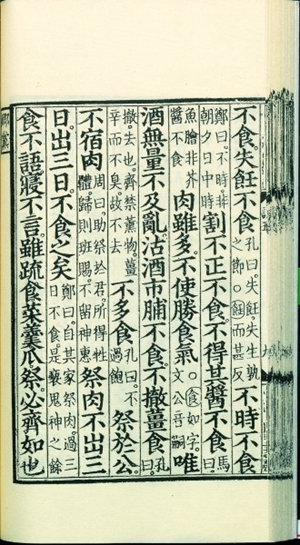 不食。失飪不食。孔曰。失飪。失生熟之節。〇飪而甚反不時不食。
鄭曰。不時。非朝夕日中時割不正不食。不得其醬不食。馬曰。
魚膾非芥醬不食肉雖多。不使勝食氣。〇食如字。文公音嗣唯
酒無量不及亂。沽酒市脯不食。不撤薑食。孔曰。
撤。去也。齊禁薰物。薑辛而不臭。故不去不多食。孔曰。不過飽祭於公。
不宿肉。周曰。助祭於君。所得牲體。歸則班賜。不留神惠祭肉不出三
日。出三日。不食之矣。鄭曰。自其家祭肉。過三日不食。是褻鬼神之餘
食不語。寢不言。雖疏食菜羹瓜祭。必齊如也